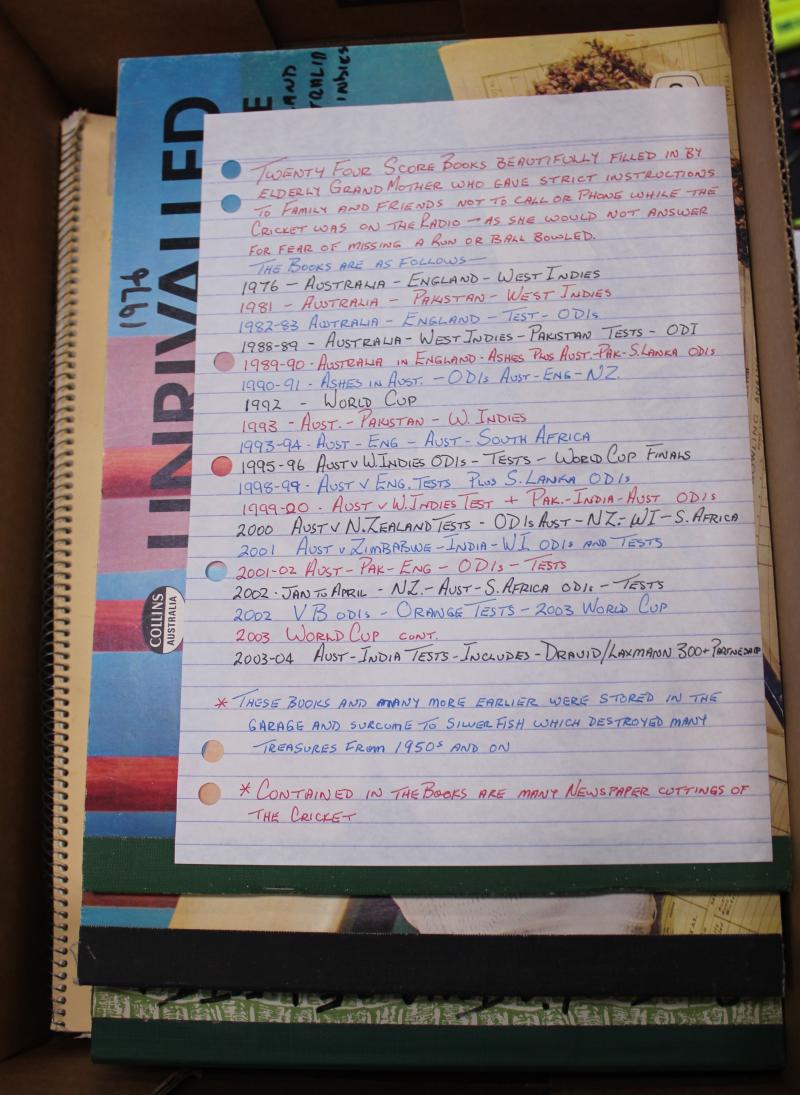 UNRIVALLED
1976
COLLINS
AUSTRALIA
TWENTY FOUR SCORE BOOKS BEAUTIFULLY FILLED IN BY
ELDERLY GRAND MOTHER WHO GAVE STRICT INSTRUCTIONS
TO FAMILY AND FRIENDS NOT TO CALL OR PHONE WHILE THE
CRICKET WAS ON THE RADIO - AS SHE WOULD NOT ANSWER
FOR FEAR OF MISSING A RUN OR BALL BOWLED.
THE BOOKS ARE AS FOLLOWS -
1976 - AUSTRALIA - ENGLAND - WEST INDIES
1981 - AUSTRALIA - PAKISTAN - WEST INDIES
1982-83 AUSTRALIA - ENGLAND - TEST - ODIs
1988-89 - AUSTRALIA - WEST INDIES - PAKISTAN TESTS - ODI
1989-90 - AUSTRALIA IN ENGLAND - ASHES PLUS AUST - PAK - S.LANKA ODIs
1990-91 - ASHES IN AUST. - ODIs AUST - ENG - NZ.
1992 - WORLD CUP
1993 - AUST. - PAKISTAN - W. INDIES
1993-94 - AUST - ENG - AUST - SOUTH AFRICA
1995-96 AUST v W.INDIES ODIs - TESTS - WORLD CUP FINALS
1998-99 - AUST v ENG. TESTS PLUS S. LANKA ODIs
1999-20 - AUST v W.INDIES TEST + PAK.-INDIA-AUST ODIs
2000 AUST v N.ZEALAND TESTS - ODIs AUST - NZ - WI - S.AFRICA
2001 AUST v ZIMBABWE - INDIA - W.I. ODIs AND TESTS
2001-02 AUST - PAK - ENG - ODIs - TESTS
2002 - JAN TO APRIL - N.Z. - AUST - S.AFRICA ODIs - TESTS
2002 VB ODIs - ORANGE TESTS - 2003 WORLD CUP
2003 WORLD CUP CONT.
2003-04 AUST - INDIA TESTS - INCLUDES - DRAVID/LAXMANN 300+ PARTNESHIP
* THESE BOOKS AND MANY MORE EARLIER WERE STORED IN THE
GARAGE AND SURCOME TO SILVER FISH WHICH DESTROYED MANY
TREASURES FROM 1950s AND ON
* CONTAINED IN THE BOOKS ARE MANY NEWSPAPER CUTTINGS OF
THE CRICKET